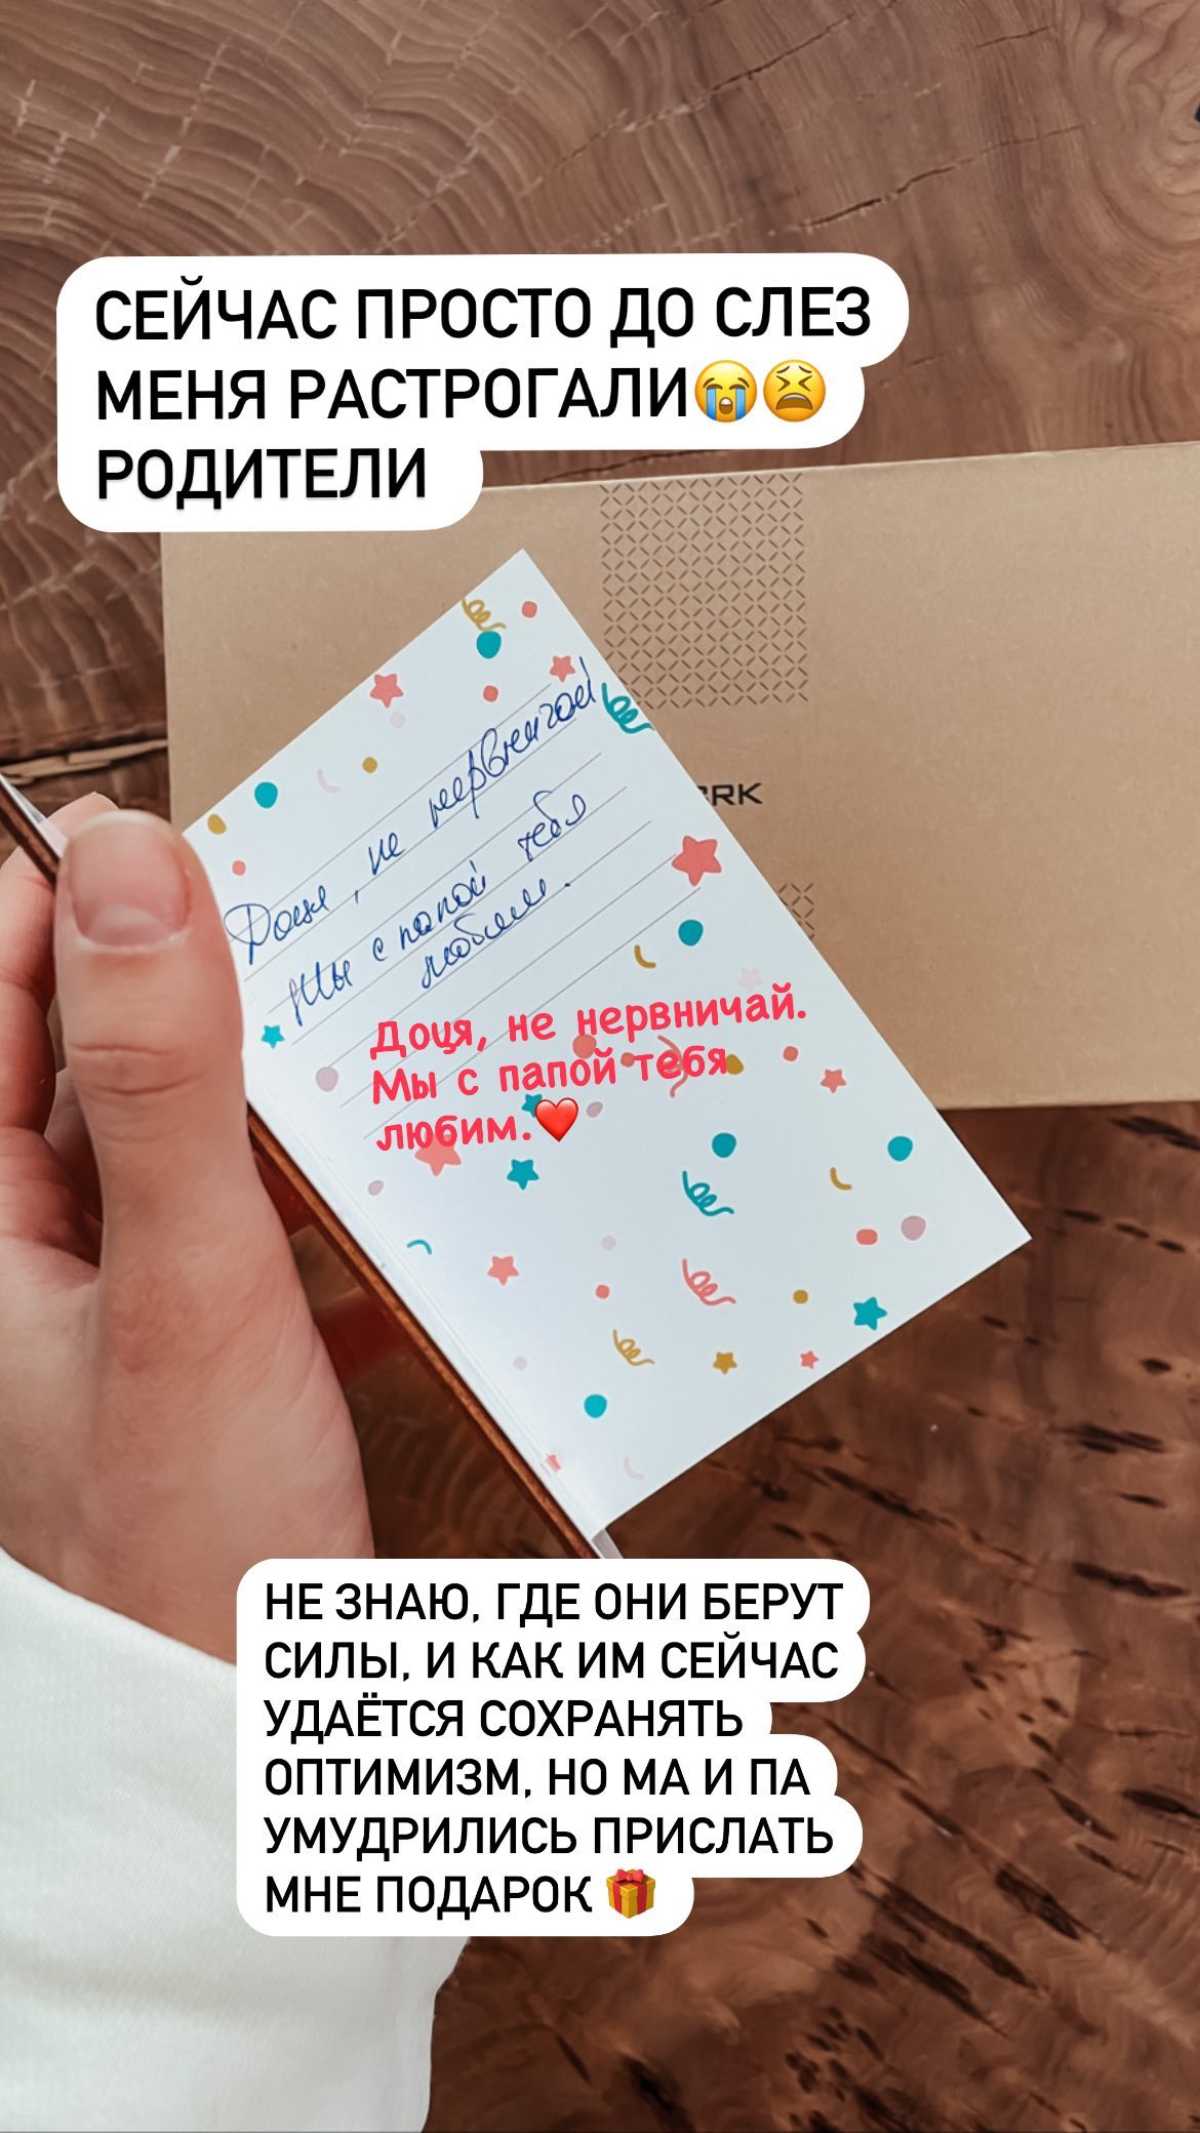 СЕЙЧАС ПРОСТО ДО СЛЕЗ
МЕНЯ РАСТРОГАЛИ😭😫
РОДИТЕЛИ
RK
Доця, не нервничай
Мы с папой тебя
любим.
Доця, не нервничай.
Мы с папой тебя
любим.❤️
НЕ ЗНАЮ, ГДЕ ОНИ БЕРУТ
СИЛЫ, И КАК ИМ СЕЙЧАС
УДАЁТСЯ СОХРАНЯТЬ
ОПТИМИЗМ, НО МА И ПА
УМУДРИЛИСЬ ПРИСЛАТЬ
МНЕ ПОДАРОК 🎁